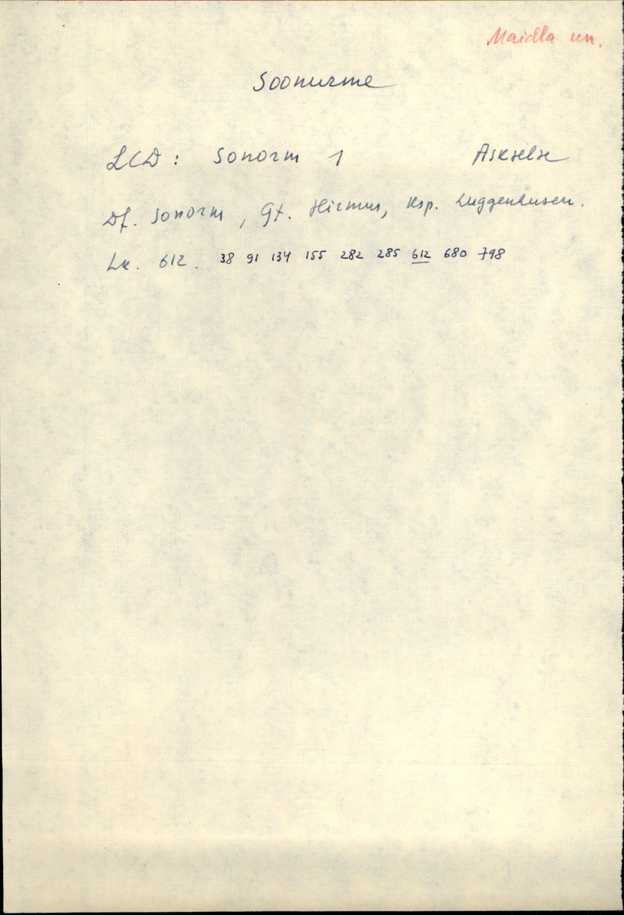 Maidla un.
Soonurme
LCD: Sonorm 1 Askælæ
Df. Sonorm, Gt. Hirmus, Ksp. Luggenhusen.
Lk. 612. 38 91 134 155 282 285 612 680 798